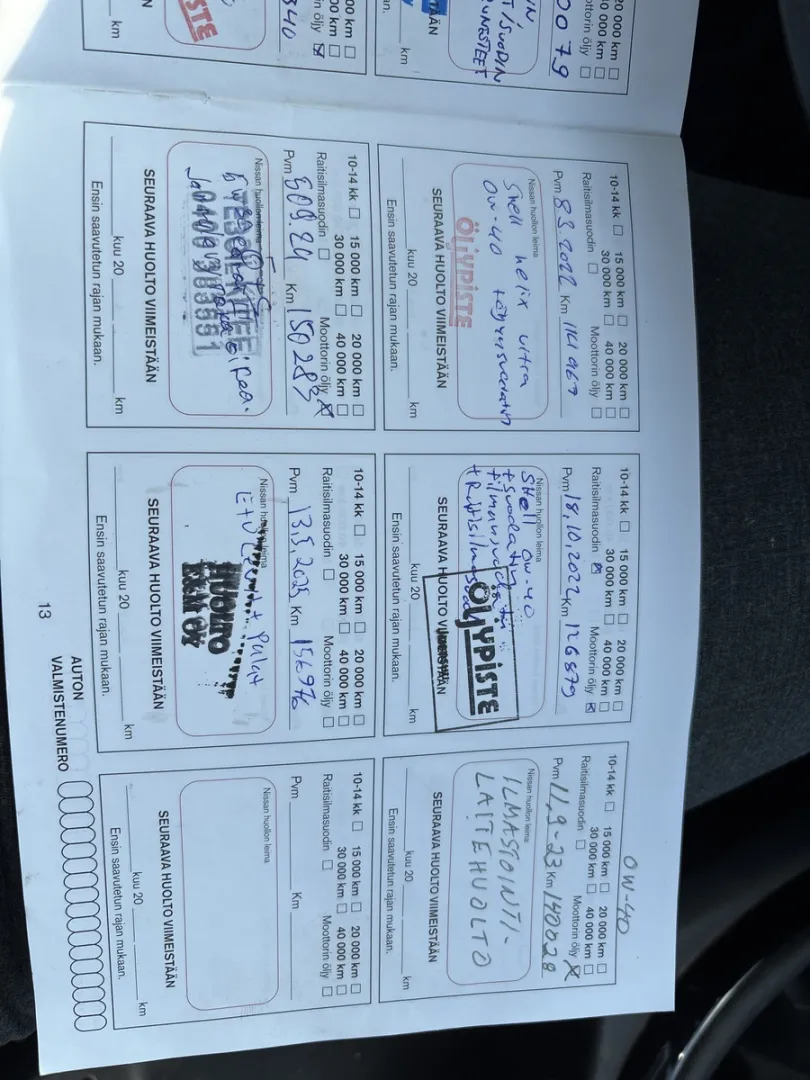 20 000 km
40 000 km
Moottorin öljy
0079
T/SUODIN
km
10-14 kk 15 000 km 20 000 km
30 000 km 40 000 km
Raitisilmasuodin Moottorin öljy
Pvm 8.3.2022 Km 1161967
Nissan huollon leima
Shell helix ultra
0w-40
ÖLJYPISTE
SEURAAVA HUOLTO VIIMEISTÄÄN
kuu 20 km
Ensin saavutetun rajan mukaan.
10-14 kk 15 000 km 20 000 km
30 000 km 40 000 km
Raitisilmasuodin Moottorin öljy
Pvm 18.10.2022 Km 126879
Nissan huollon leima
Shell 0w-40
+ suodatin
ÖLJYPISTE
SEURAAVA HUOLTO VIIMEISTÄÄN
kuu 20 km
Ensin saavutetun rajan mukaan.
0W-40
10-14 kk 15 000 km 20 000 km
30 000 km 40 000 km
Raitisilmasuodin Moottorin öljy
Pvm 11.9-23 Km 140028
Nissan huollon leima
ILMASTOINTI-
LAITEHUOLTO
SEURAAVA HUOLTO VIIMEISTÄÄN
kuu 20 km
Ensin saavutetun rajan mukaan.
00 km
00 km
öljy
340
STE
km
10-14 kk 15 000 km 20 000 km
30 000 km 40 000 km
Raitisilmasuodin Moottorin öljy
Pvm 5.09.24 Km 150283
Nissan huollon leima
SEURAAVA HUOLTO VIIMEISTÄÄN
kuu 20 km
Ensin saavutetun rajan mukaan.
10-14 kk 15 000 km 20 000 km
30 000 km 40 000 km
Raitisilmasuodin Moottorin öljy
Pvm 13.5.2025 Km 156976
Nissan huollon leima
palat
HUOLTO
SEURAAVA HUOLTO VIIMEISTÄÄN
kuu 20 km
Ensin saavutetun rajan mukaan.
10-14 kk 15 000 km 20 000 km
30 000 km 40 000 km
Raitisilmasuodin Moottorin öljy
Pvm Km
Nissan huollon leima
SEURAAVA HUOLTO VIIMEISTÄÄN
kuu 20 km
Ensin saavutetun rajan mukaan.
13
AUTON
VALMISTENUMERO